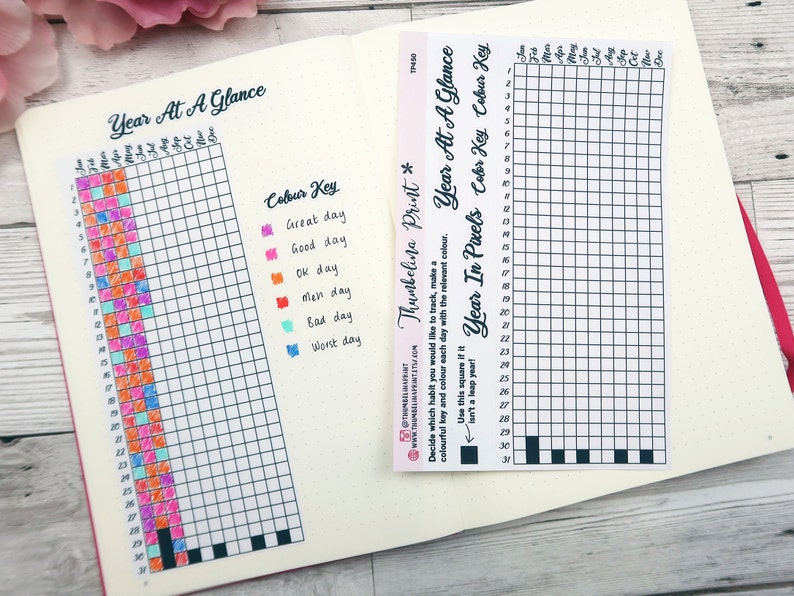 Year At A Glance
Jan
Feb
Mar
Apr
May
Jun
Jul
Aug
Sep
Oct
Nov
Dec
1
2
3
4
5
6
7
8
9
10
11
12
13
14
15
16
17
18
19
20
21
22
23
24
25
26
27
28
29
30
31
Colour Key
Great day
Good day
OK day
Meh day
Bad day
Worst day
TP450
Thumbelina Print *
@THUMBELINAPRINT
WWW.THUMBELINAPRINT.ETSY.COM
Decide which habit you would like to track, make a
colourful key and colour each day with the relevant colour.
Use this square if it
isn't a leap year!
Year At A Glance
Year In Pixels
Colour Key
Color Key
Jan
Feb
Mar
Apr
May
Jun
Jul
Aug
Sep
Oct
Nov
Dec
1
2
3
4
5
6
7
8
9
10
11
12
13
14
15
16
17
18
19
20
21
22
23
24
25
26
27
28
29
30
31